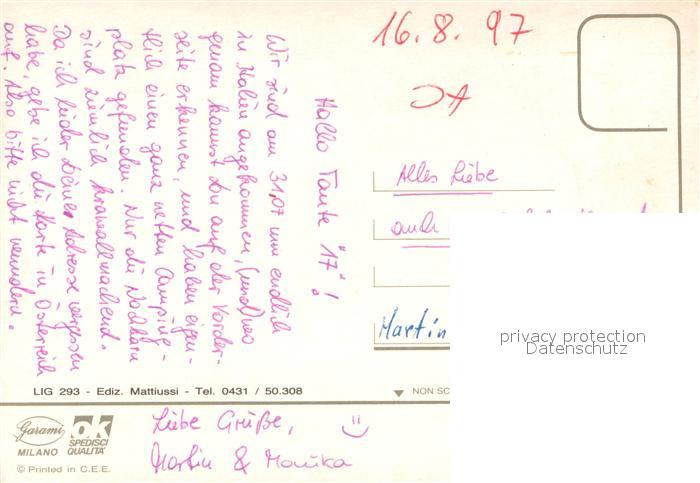 16.8.97
Hallo Tante "17"!
Wir sind am 31.07 nun endlich
in Italien angekommen, (und) wo
genau kannst du auf der Vorder-
seite erkennen, und haben eigen-
tlich einen ganz netten Camping-
platz gefunden. Nur die Nachbarn
sind ziemlich krawallmachend.
Da ich leider deine Adresse vergessen
habe, gebe ich die Karte in Österreich
auf. Also bitte nicht wundern.
Alles Liebe
auch
Martin
privacy protection
Datenschutz
LIG 293 - Ediz. Mattiussi - Tel. 0431 / 50.308
NON SC
Liebe Grüße,
Martin & Monika
Garami
MILANO
ok
SPEDISCI
QUALITA'
© Printed in C.E.E.